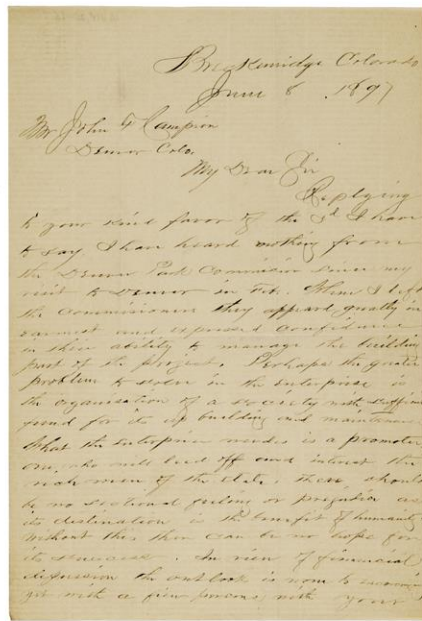 Breckenridge Colorado
June 8 1897
Mr John F Campion
Denver Colo.
My Dear Sir
Replying
to your kind favor of the 3d I have
to say I have heard nothing from
the Denver Park Commission since my
visit to Denver in Feb. When I left
the Commissioners they appeared greatly in
earnest and expressed confidence
in their ability to manage the building
part of the project. Perhaps the greater
problem to solve in the enterprise is
the organization of a society with sufficient
fund for its up building and maintenance
What the enterprise needs is a promoter
one who will lead off and interest the
rich men of the state. there should
be no sectional feeling or prejudice as
its destination is the benefit of humanity
without this there can be no hope for
its success. In view of financial
depression the outlook is
yet with a few persons with your